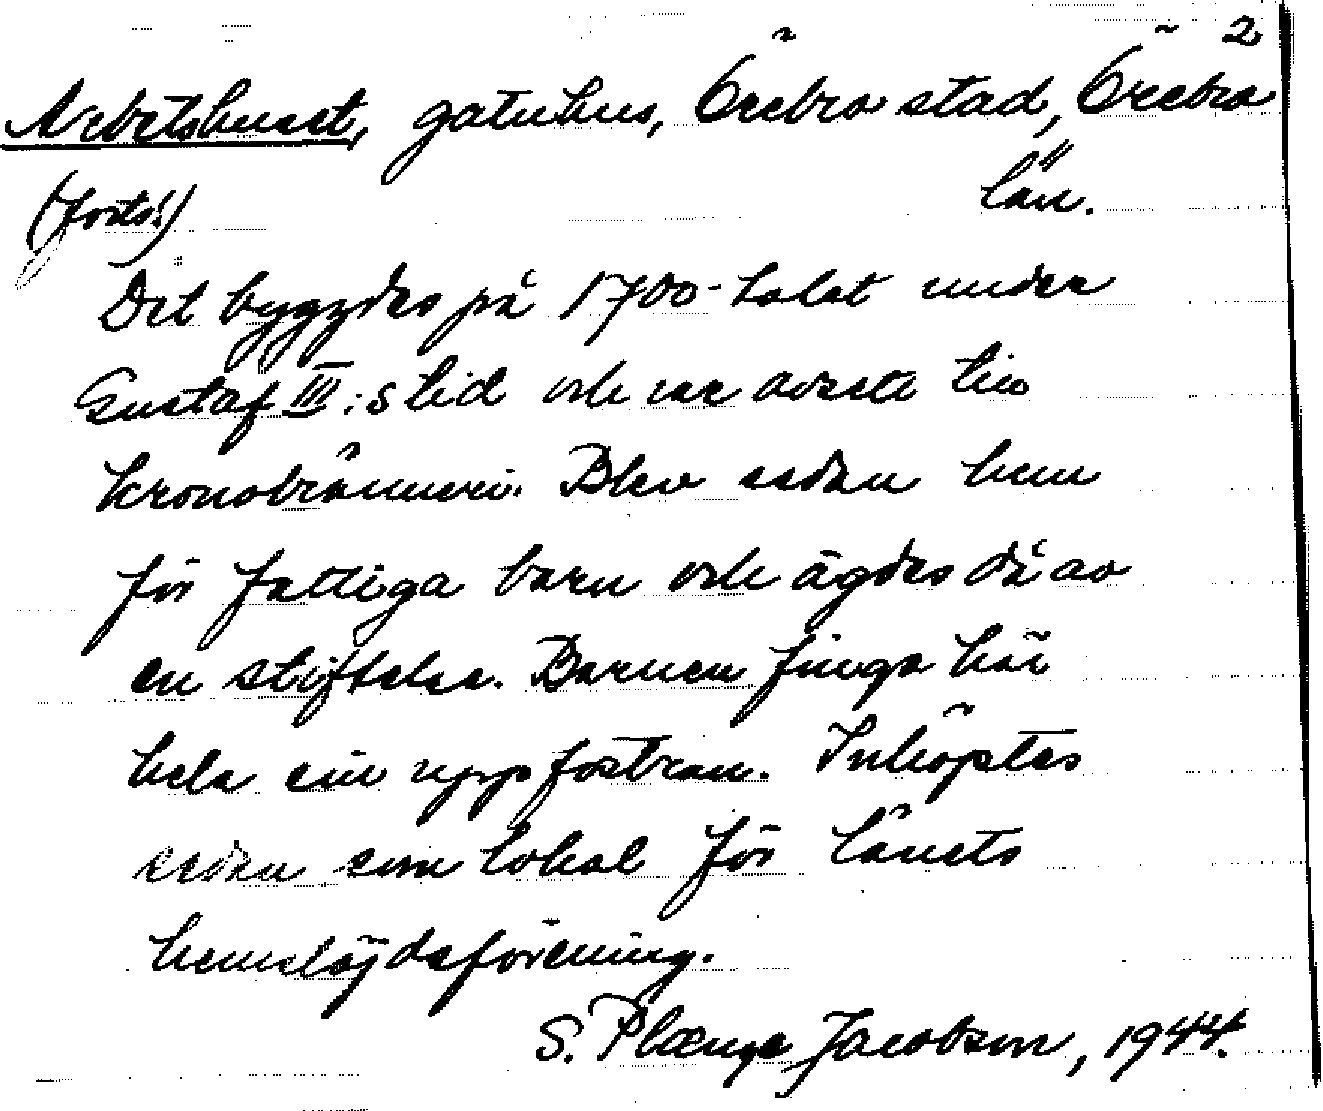 2
Arbetshuset, gatuhus, Örebro stad, Örebro
(forts.) län.
Det byggdes på 1700-talet under
Gustaf III:s tid och var avsett till
kronobränneri. Blev sedan hem
för fattiga barn och ägdes då av
en stiftelse. Barnen fingo här
hela sin uppfostran. Inköptes
sedan som lokal för länets
hemslöjdsförening.
S. Plænge Jacobson, 1944.